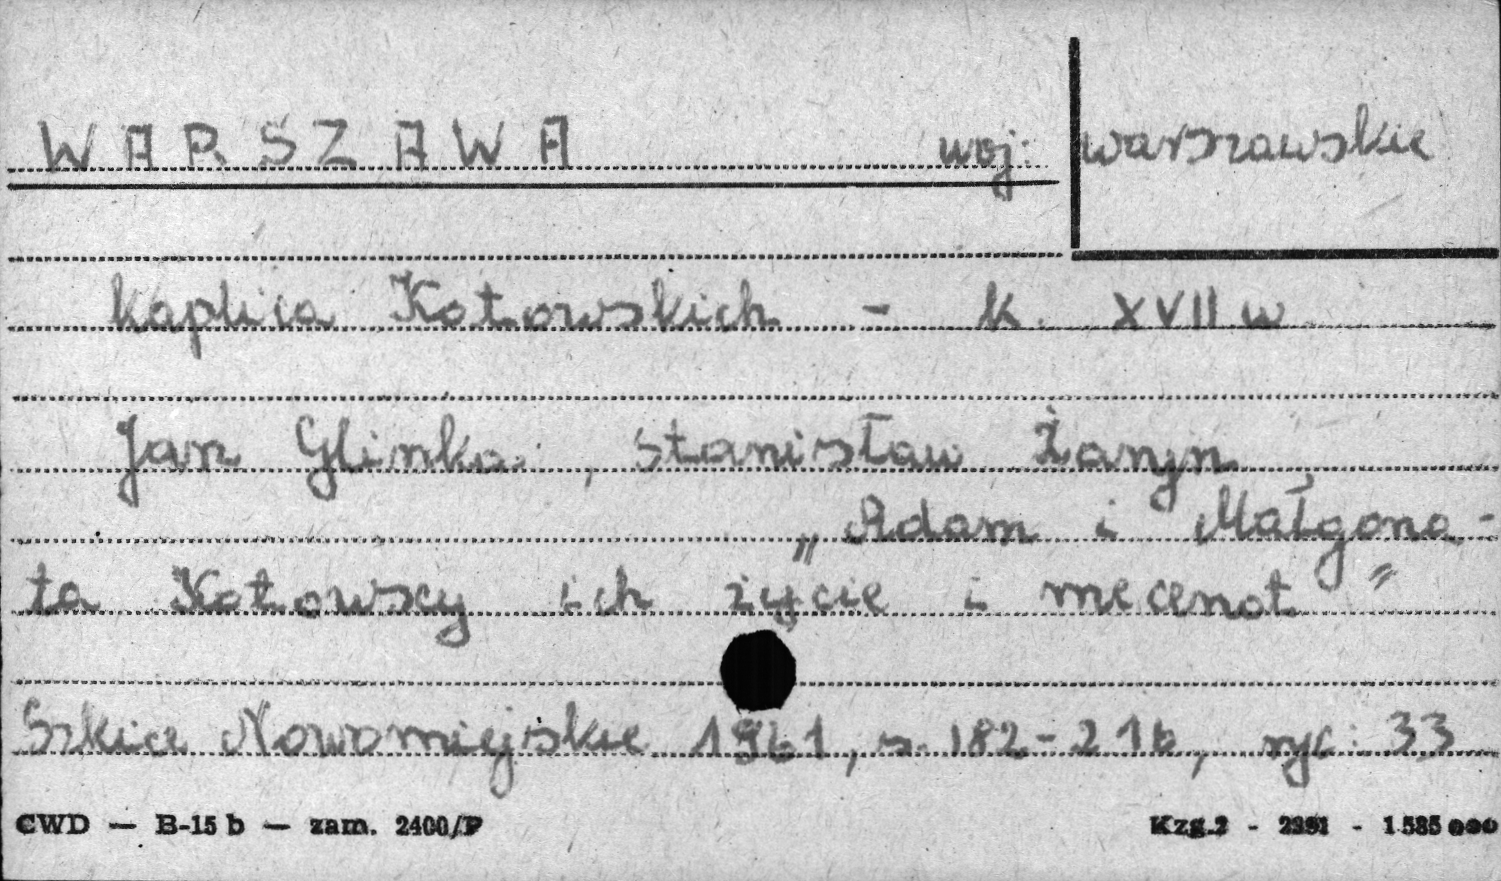 WARSZAWA woj: warszawskie
kaplica Kotowskich - k. XVII w
Jan Glinka, Stanisław Żaryn
„Adam i Małgorza-
ta Kotowscy ich życie i mecenat"
Szkice Nowomiejskie 1961, s. 182-216, ryc: 33
CWD — B-15 b — zam. 2400/P Kzg.2 - 2391 - 1 585 000